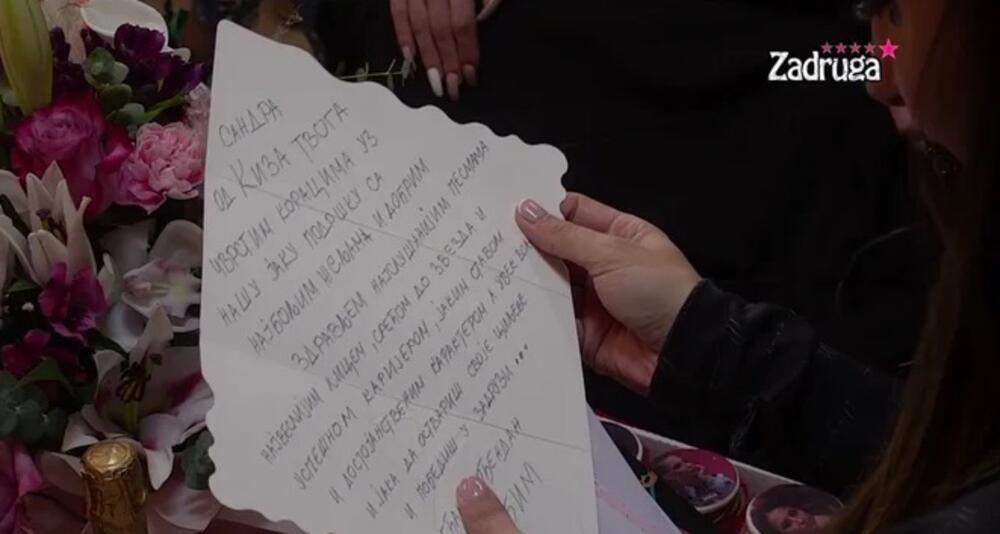 Zadruga
САНДРА
ОД КИЗА ТВОГА
ЧВРСТИМ КОРАЦИМА УЗ
НАШУ ЈАКУ ПОДРШКУ СА
НАЈБОЉИМ ЖЕЉАМА И ДОБРИМ
ЗДРАВЉЕМ НАЈСЛУШАНИЈИМ ПЕСМАМА
НАЈВЕСЕЛИЈИМ ЛИЦЕМ, СРЕЋОМ ДО ЗВЕЗДА И
УСПЕШНОМ КАРИЈЕРОМ, ЈАКИМ СТАВОМ
И ДОСТОЈАНСТВЕНИМ КАРАКТЕРОМ А УВЕК
И ЈАКА ДА ОСТВАРИШ СВОЈЕ ЦИЉЕВЕ
И ПОБЕДИШ У ЗАДРУЗИ...